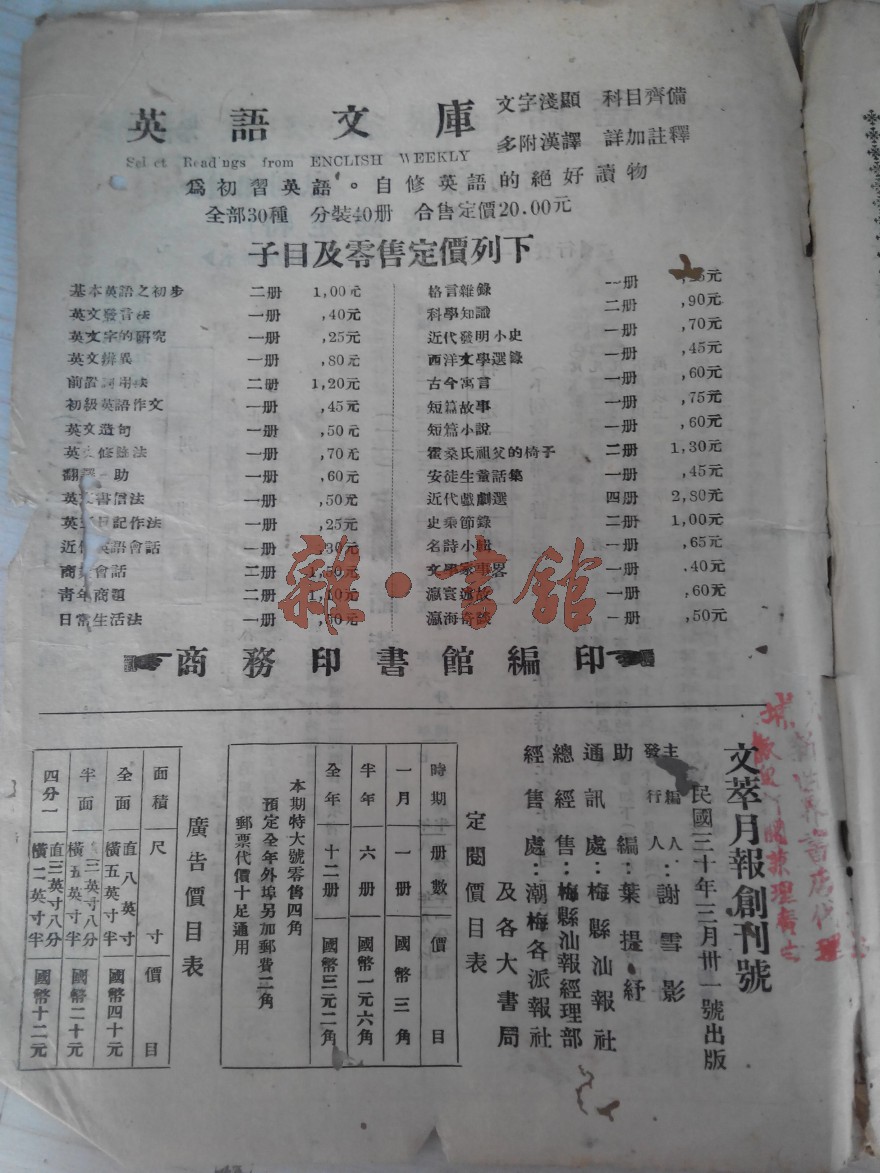 英語文庫
文字淺顯　科目齊備
多附漢譯　詳加註釋
Readings from ENCLISH WEEKLY
爲初習英語。自修英語的絕好讀物
全部30種　分裝40册　合售定價20.00元
子目及零售定價列下
基本英語之初步　二册　1,00元
英文發音法　一册　,40元
英文字的研究　一册　,25元
英文辨異　一册　,80元
前置詞用法　二册　1,20元
初級英語作文　一册　,45元
英文造句　一册　,50元
英文修辭法　一册　,70元
翻譯一助　一册　,60元
英文書信法　一册　,50元
英文日記作法　一册　,25元
近代英語會話　一册　,30元
商業會話　二册　1,50元
青年商題　二册　1,10元
日常生活法　一册　,50元
格言雜錄　一册　元
科學知識　二册　,90元
近代發明小史　一册　,70元
西洋文學選錄　一册　,45元
古今寓言　一册　,60元
短篇故事　一册　,75元
短篇小說　一册　,60元
霍桑氏祖父的椅子　二册　1,30元
安徒生童話集　一册　,45元
近代戲劇選　四册　2,80元
史乘節錄　二册　1,00元
名詩小輯　一册　,65元
文學家事畧　一册　.40元
瀛寰述故　一册　,60元
瀛海奇談　一册　,50元
商務印書館編印
雜·書館
文萃月報創刊號
民國三十年三月卅一號出版
主編人
發行人：謝雪影
助編：葉提紓
通訊處：梅縣汕報社
總經售：梅縣汕報經理部
經售處：潮梅各派報社
及各大書局
定閱價目表
時期　册數　價目
一月　一册　國幣三角
半年　六册　國幣一元六角
全年　十二册　國幣三元二角
本期特大號零售四角
預定全年外埠另加郵費二角
郵票代價十足通用
廣告價目表
面積　尺寸　價目
全面　直八英寸　橫五英寸半　國幣四十元
半面　直三英寸八分　橫五英寸半　國幣二十元
四分一　直三英寸八分　橫二英寸半　國幣十二元